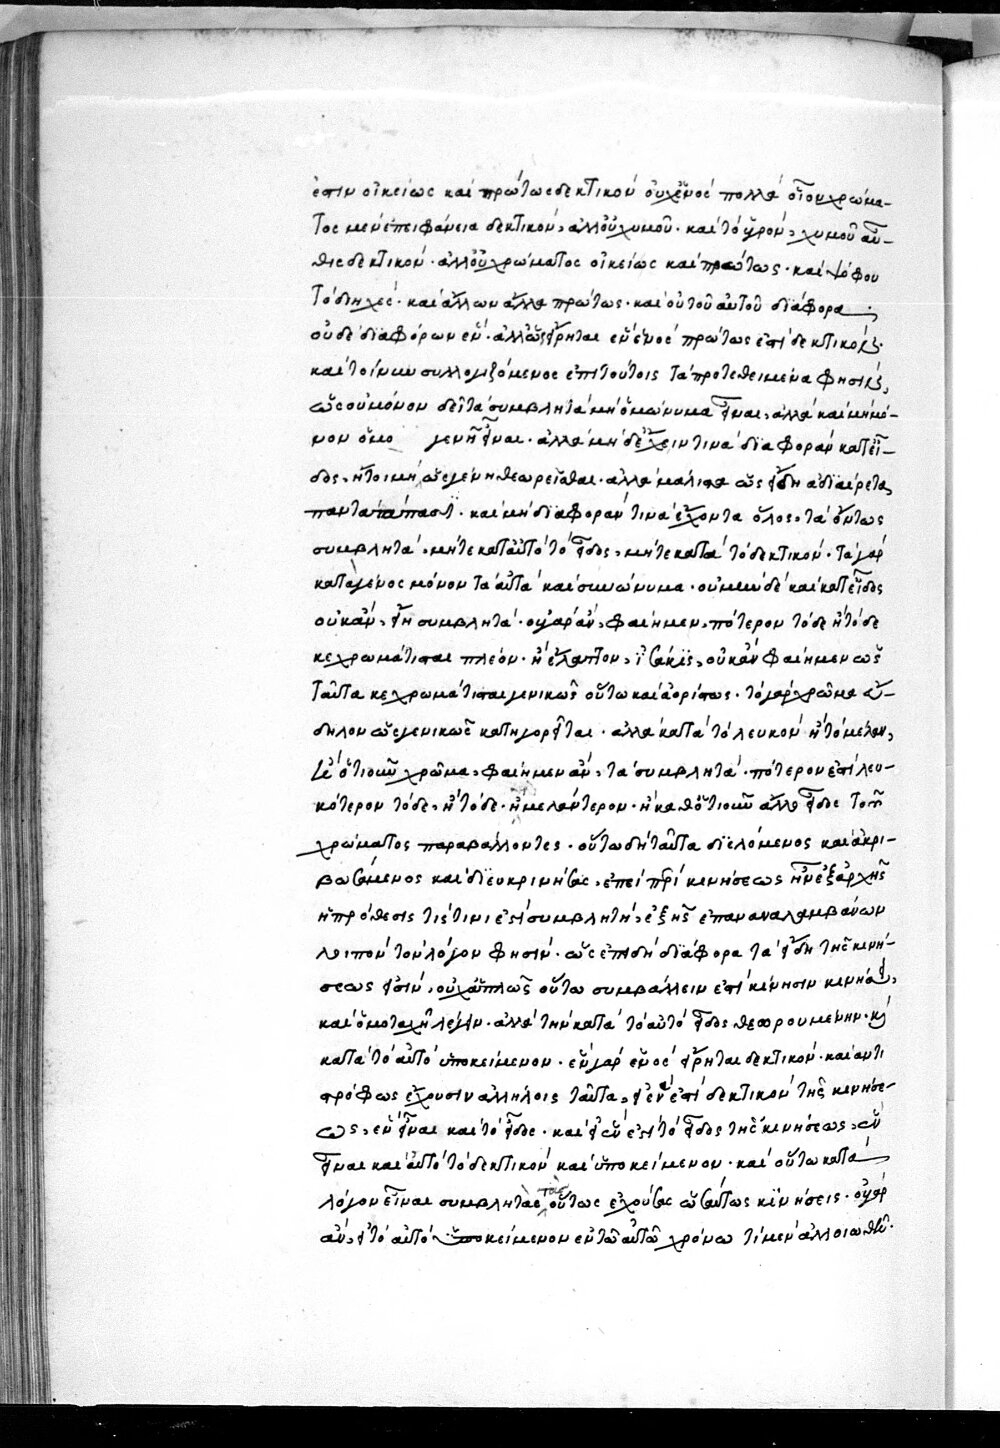 ἐστιν οἰκείως καὶ πρώτως δεκτικὸν οὐχ ἑνὸς πολλὰ οἷον χρώμα-
τος μὲν ἐπιφάνεια δεκτικὸν, ἀλλ' οὐ χυμοῦ· καὶ τὸ ὑγρὸν, χυμοῦ αὖ-
θις δεκτικὸν· ἀλλ' οὐ χρώματος οἰκείως καὶ πρώτως· καὶ ψόφου
τὸ διηχὲς· καὶ ἄλλων ἄλλα πρώτως· καὶ οὐ τοῦ αὐτοῦ διάφορα
οὐδὲ διαφόρων ἓν· ἀλλ' ὡς εἴρηται ἓν ἑνὸς πρώτως ἐστὶ δεκτικὸν
καὶ τοίνυν συλλογιζόμενος ἐπὶ τούτοις τὰ προτεθειμένα φησὶ
ὡς οὐ μόνον δεῖ τὰ συμβλητὰ μὴ ὁμώνυμα εἶναι, ἀλλὰ καὶ μὴ μό-
νον ὁμο γενῆ εἶναι· ἀλλὰ μὴ δὲ ἔχειν τινὰ διαφορὰν κατ' εἶ-
δος, ἤτοι μὴ ὡς γένη θεωρεῖσθαι· ἀλλὰ μάλιστα ὡς εἴδη ἀδιαίρετα,
πανταπάπασι· καὶ μὴ διαφοράν τινα ἔχοντα ὅλως, τὰ ὄντως
συμβλητὰ, μήτε κατ' αὐτὸ τὸ εἶδος, μήτε κατὰ τὸ δεκτικόν· τὰ γὰρ
κατὰ γένος μόνον τὰ αὐτὰ καὶ συνώνυμα· οὐ μὴν δὲ καὶ κατ' εἶδος
οὐκ ἂν, εἴη συμβλητά· οὐ γὰρ ἂν, φαίημεν, πότερον τόδε ἢ τόδε
κεχρωμάτισται πλέον· ἢ ἔλαττον, ἢ ἰσάκις, οὐκ ἂν φαίημεν ὡς
ταῦτα κεχρωμάτισται γενικῶς οὕτω καὶ ἀορίστως· τὸ γὰρ χρῶμα εὔ-
δηλον ὡς γενικῶς κατηγορεῖται· ἀλλὰ κατὰ τὸ λευκὸν ἢ τὸ μέλαν,
ἢ ὁτιοῦν χρῶμα, φαίημεν ἂν, τὰ συμβλητά· πότερον ἐστὶ λευ-
κότερον τόδε, ἢ τόδε· ἢ μελάντερον· ἢ καθ' ὁτιοῦν ἄλλο εἶδος τοῦ
χρώματος παραβάλλοντες· οὕτω δὴ ταῦτα διελόμενος καὶ ἀκρι-
βωσάμενος καὶ διευκρινήσας, ἐπεὶ περὶ κινήσεως ἦν ἐξ ἀρχῆς
ἡ πρόθεσις τίς τινι ἐστὶ συμβλητὴ, ἑξῆς ἐπαναλαμβάνων
λοιπὸν τὸν λόγον φησὶν· ὡς ἐπειδὴ διάφορα τὰ εἴδη τῆς κινή-
σεως εἰσὶν, οὐχ ἁπλῶς οὕτω συμβάλλειν ἐστὶ κίνησιν κινήσει,
καὶ ὁμοταχῆ λέγειν· ἀλλὰ τὴν κατὰ τὸ αὐτὸ εἶδος θεωρουμένην· καὶ
κατὰ τὸ αὐτὸ ὑποκείμενον· ἓν γὰρ ἑνὸς εἴρηται δεκτικόν· καὶ ἀντι
στρόφως ἔχουσιν ἀλλήλοις ταῦτα, εἰ ἕν ἐστι δεκτικὸν τῆς κινήσε-
ως, ἓν εἶναι καὶ τὸ εἶδος· καὶ εἰ ἕν ἐστι τὸ εἶδος τῆς κινήσεως, ἓν
εἶναι καὶ αὐτὸ τὸ δεκτικὸν καὶ ὑποκείμενον· καὶ οὕτω κατὰ
λόγον εἶναι συμβλητὰς τὰς οὕτως ἐχούσας ὡσαύτως κινήσεις· οὐ γὰρ
ἂν, εἰ τὸ αὐτὸ ὑποκείμενον ἐν τῶ αὐτῶ χρόνω τὶ μὲν ἀλλοιωθῆ·